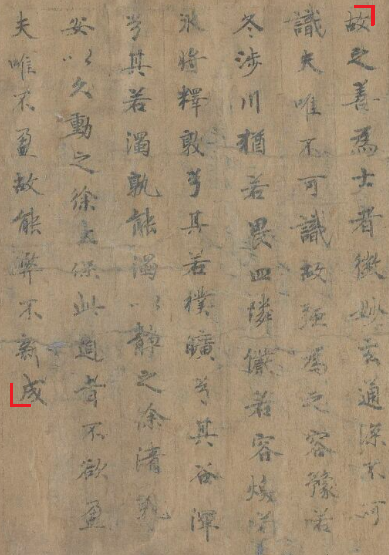 故之善為士者微妙玄通深不可
識夫唯不可識故強為之容豫若
冬涉川猶若畏四隣儼若容煥若
氷將釋敦兮其若樸曠兮其谷渾
兮其若濁孰能濁以靜之徐清孰
安以久動之徐生保此道者不欲盈
夫唯不盈故能弊不新成